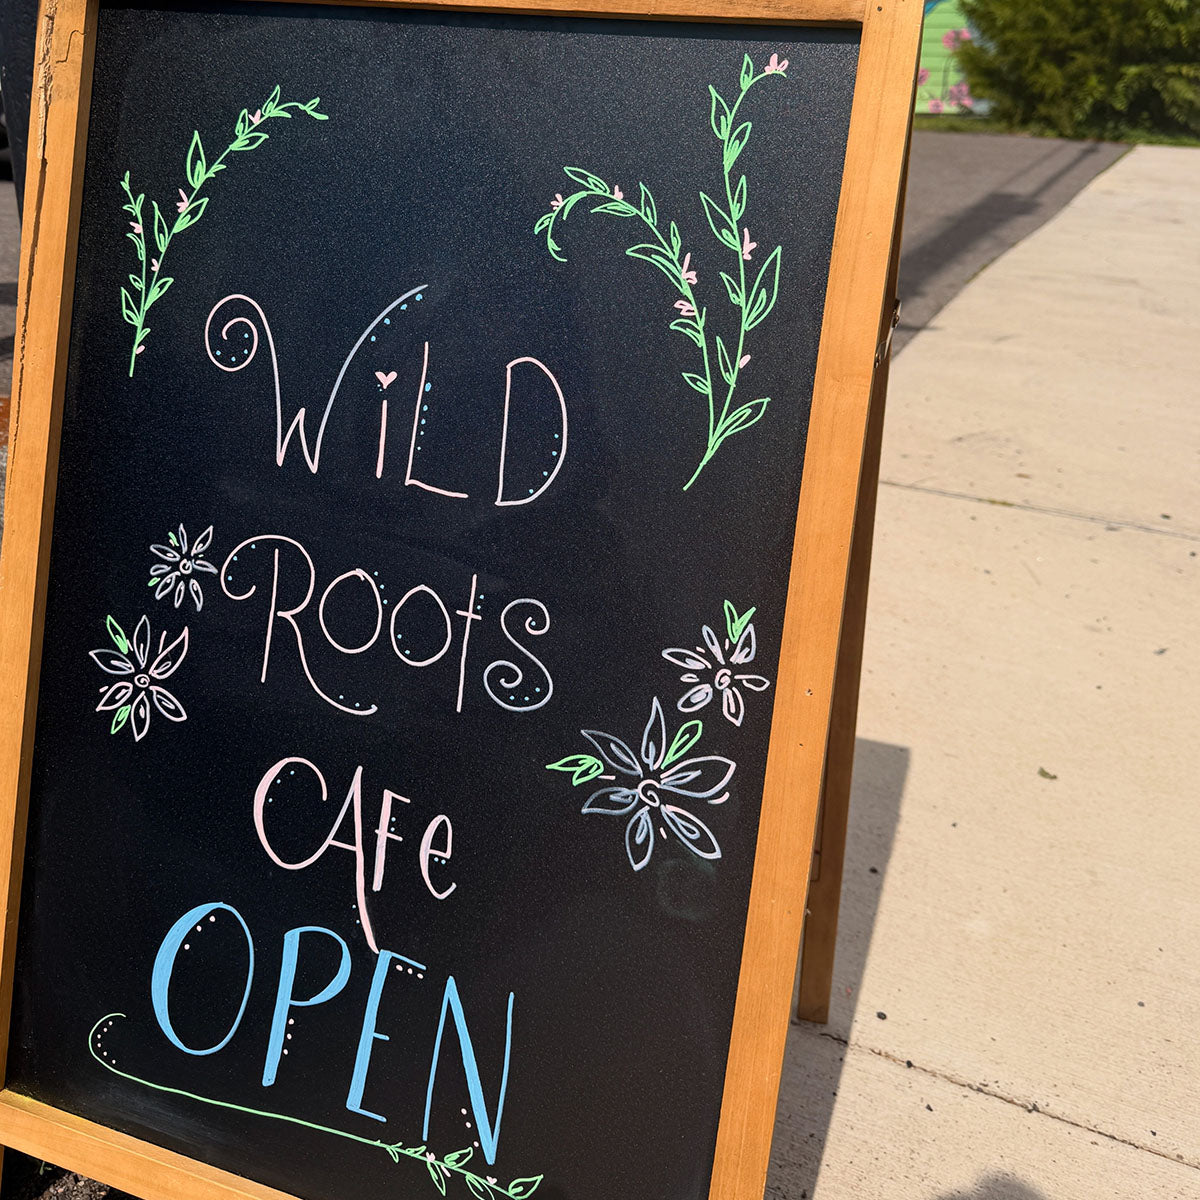 WiLD
ROOtS
CAFe
OPEN